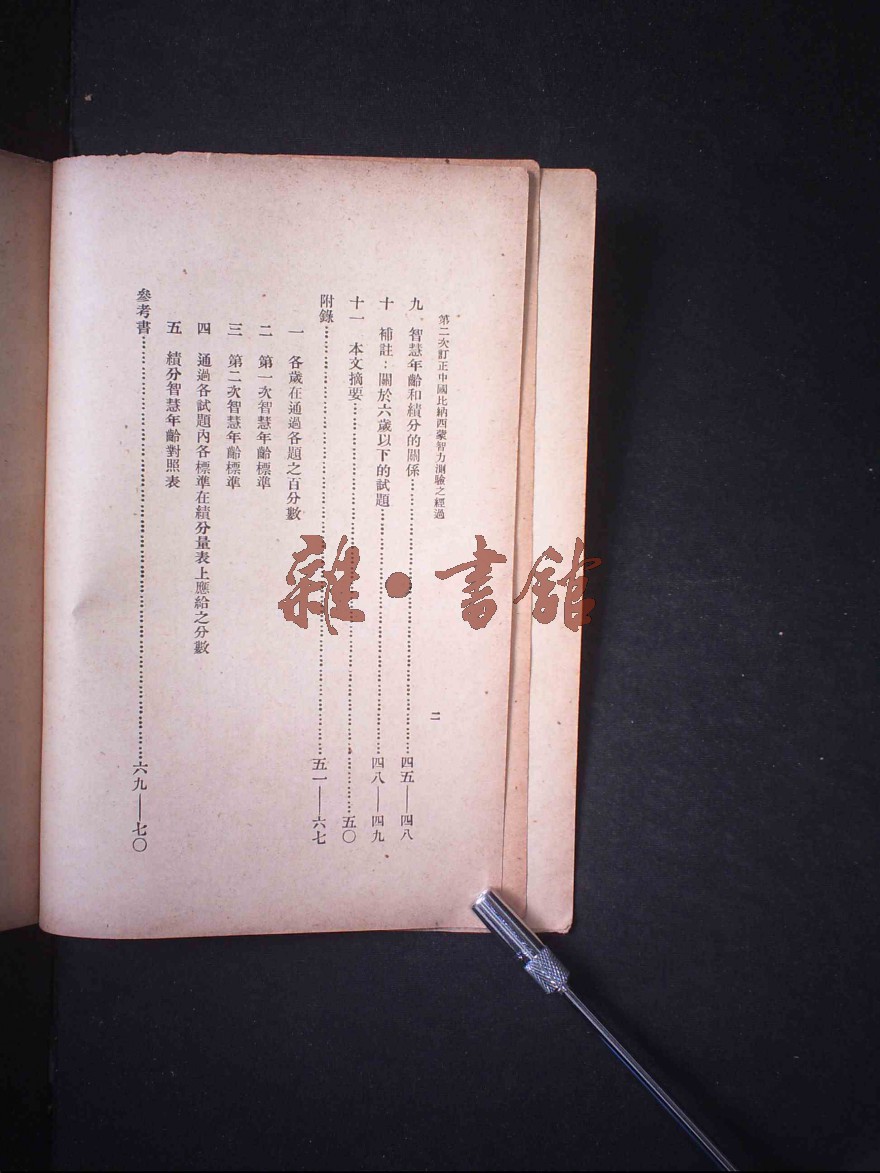 第二次訂正中國比納西蒙智力測驗之經過
二
九　智慧年齡和績分的關係……四五——四八
十　補註：關於六歲以下的試題……四八——四九
十一　本文摘要……五〇
附錄……五一——六七
一　各歲在通過各題之百分數
二　第一次智慧年齡標準
三　第二次智慧年齡標準
四　通過各試題內各標準在績分量表上應給之分數
五　績分智慧年齡對照表
參考書……六九——七〇
雜·書館